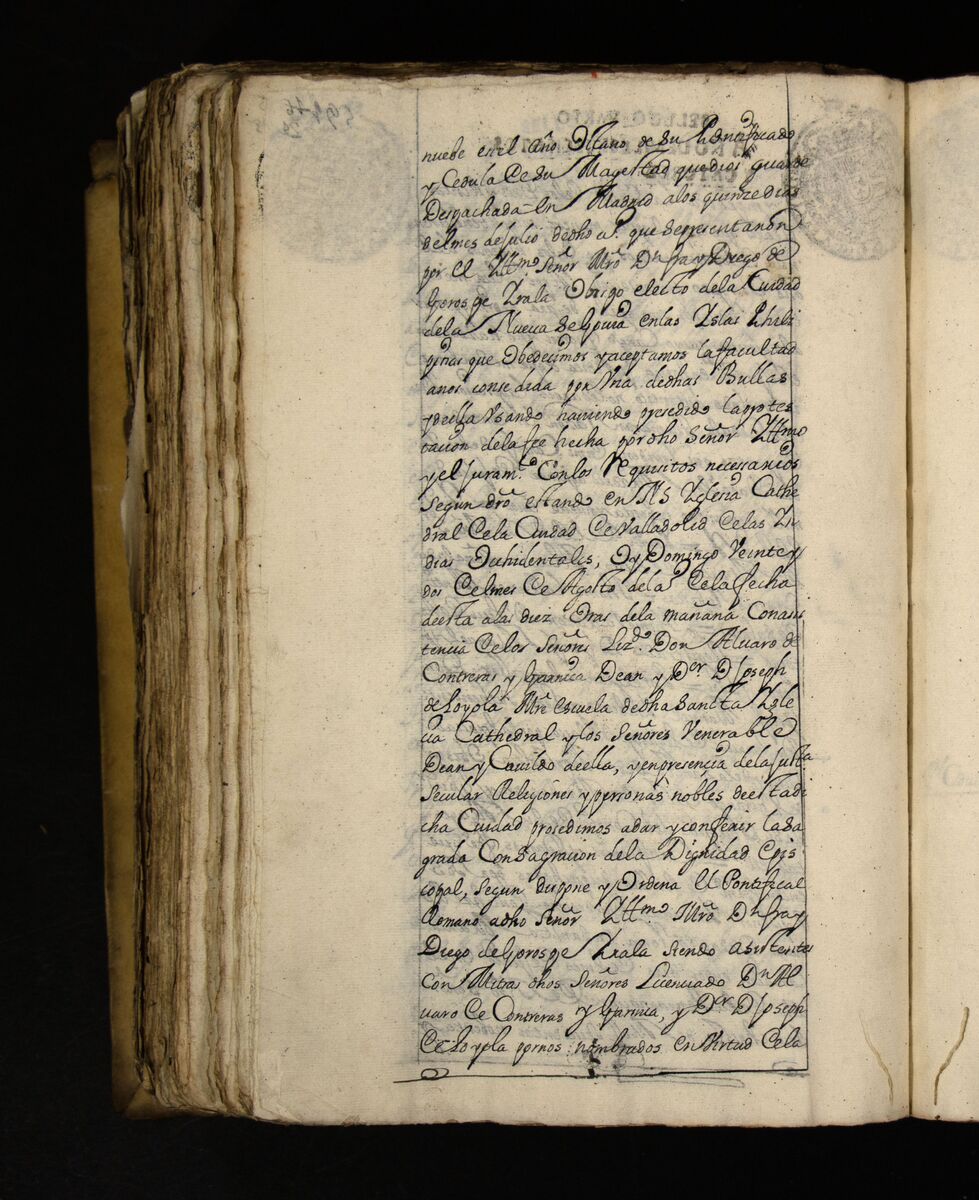 nuebe en el año Otano de su Pontificado
y Cedula Ce su Magestad que dios guarde
Despachada En Madrid a los quinze dias
del mes de julio dedho a.s que se presentaron
por el Yltt.mo Señor Mrõ D.n fray Diego de
Gorospe Yrala Obispo electo dela Ciudad
dela Nueva Segovia en las Yslas Phili
pinas que Obedecimos y aceptamos la ffacultad
anos consedida por Vna dedhas Bullas
y de ella Vsando haviendo presedido la protes
tacion dela fee hecha por dho Señor Yltt.mo
y el juram.to Con los Requisitos necessarios
segun dro estando en N S Yglesia Cathe
dral Cela Ciudad Ce Valladolid Celas Yn
dias Ochidentales, Oy Domingo Veinte y
dos Cel mes Ce Agosto dela Cela fecha
de esta a las diez Oras dela mañana Con asis
tencia Celos Señores Liz.do Don Alvaro de
Contreras y Garnica Dean y D.or D Joseph
de Loyola Mrẽ escuela dedha Sancta Ygle
cia Cathedral y los Señores Venerable
Dean y Cavildo de ella, y en presencia dela justa
secular Religiones y personas nobles de esta di
cha Ciudad prosedimos a dar y conferir la sa
grada Consagracion dela Dignidad Epis
copal, segun dispone y Ordena El Pontifical
Romano a dho Señor Yltt.mo Mrõ D.n fray
Diego de Gorospe Yrala siendo asistentes
con Mitras dhos Señores Licenciado D.n Al
varo Ce Contreras y Garnica, y D.or D Joseph
Ce Loyola por nos nombrados en Virtud Cela